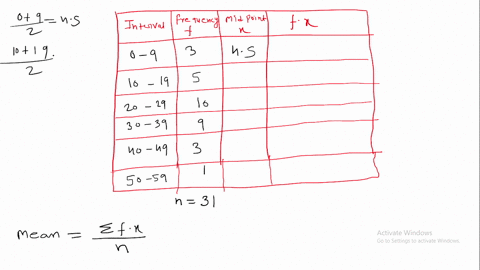 0+9/2 = 4.5
10+19/2
Interval Frequency f Mid Point x f·x
0-9 3 4.5
10-19 5
20-29 10
30-39 9
40-49 3
50-59 1
n = 31
mean = Σf·x/n
Activate Windows
Go to Settings to activate Windows.